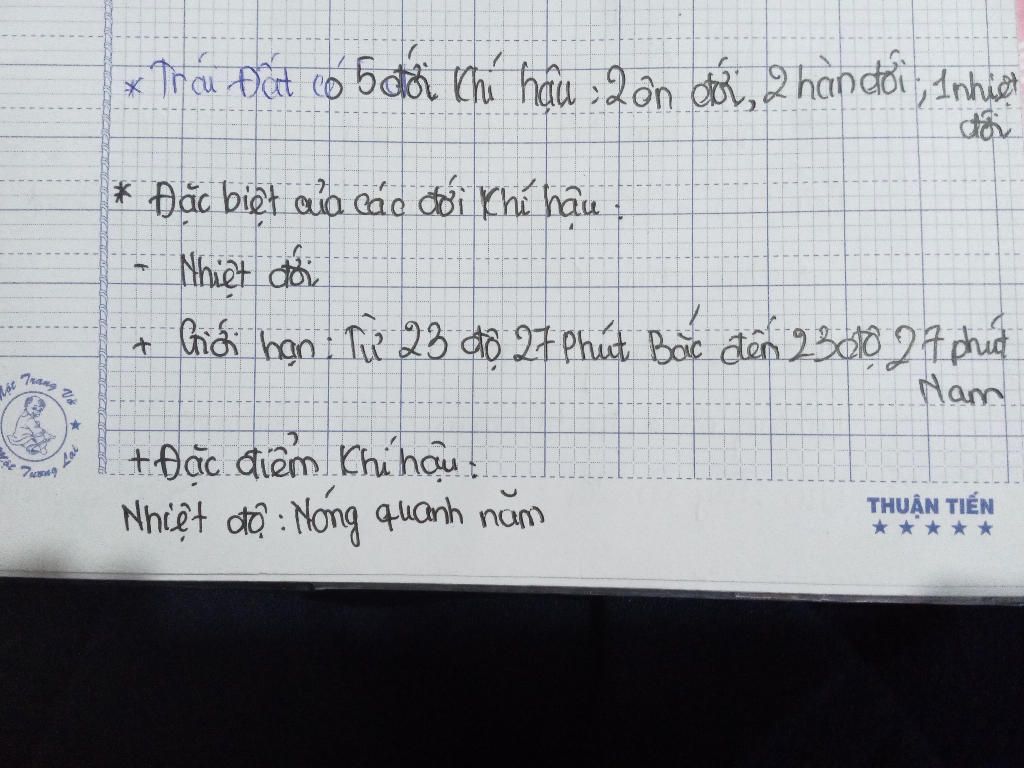 * Trái Đất có 5 đới khí hậu : 2 ôn đới, 2 hàn đới ; 1 nhiệt
đới
* Đặc biệt của các đới khí hậu :
- Nhiệt đới
+ Giới hạn : Từ 23 độ 27 phút Bắc đến 23 độ 27 phút
Nam
+ Đặc điểm khí hậu :
Nhiệt độ : Nóng quanh năm
Một Trang Vở
Một Tương Lai
THUẬN TIẾN